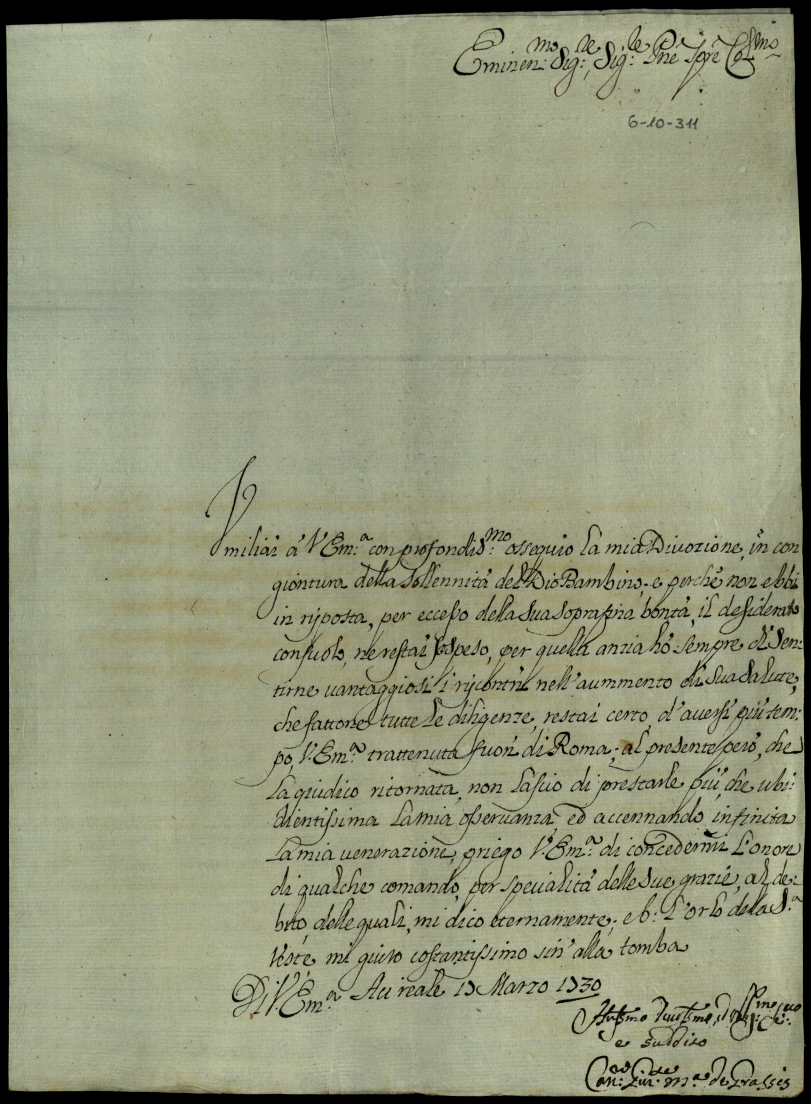 Eminen:mo Sig:re, Sig:re P̃ne, Col:mo
6-10-311
Vmiliai à V. Em:a con profondis:mo ossequio la mia Divozione, in con
giontura della Sollennità del Dio Bambino, e perchè non ebbi
in risposta, per eccesso della sua soprafina bontà, il desiderato
consuolo, ne restai sospeso, per quella anzia hò sempre di sen:
tirne vantaggiosi i riscontri nell'aummento di sua salute,
che fattone tutte le diligenze, restai certo d'aversi più tem:
po, V. Em:a trattenuta fuori di Roma; al presente però, che
la giudico ritornata, non lascio di prestarle più che ubi:
dientissima la mia osservanza, ed accennando infinita
la mia venerazione, priego V. Em:a di concedermi l'onore
di qualche comando, per specialità delle sue grazie, al de:
bito delle quali, mi dico eternamente; e b: l'orlo della S:a
Veste mi giuro costantissimo sin'alla tomba
Di V. Em:a Aci reale 13 Marzo 1730
e suddito
Can: de Grassis